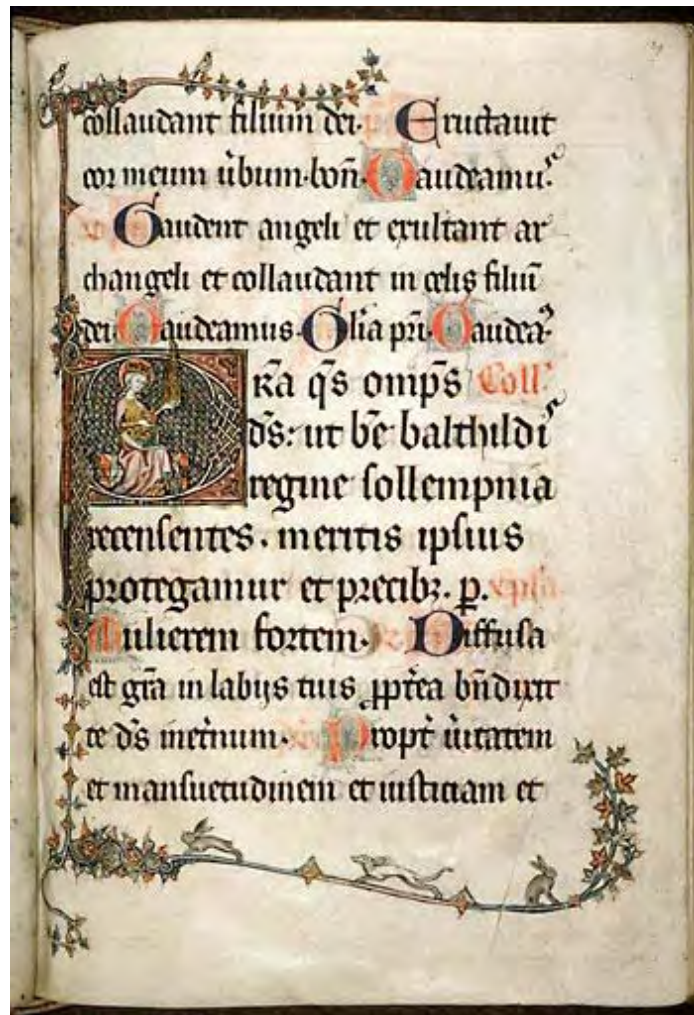 collaudant filium dei. Eructauit
cor meum ūbum·bon̄. Gaudeamuˢ.
Gaudent angeli et exultant ar
changeli et collaudant in celis filiū
dei. Gaudeamus. Glīa pr̄i. Gaudeaˀ.
r̄a q̄s omp̄s Coll'
d̄s: ut b̄e balthildiˢ
regine sollempnia
recensentes. meritis ipsius
protegamur et precibꝫ. p. epl̄a
Mulierem fortem. Diffusa
est gr̄a in labijs tuis ꝓpt̄ea bn̄dixit
te d̄s inet̄num. Propt̄ ūitatem
et mansuetudinem et iusticiam et